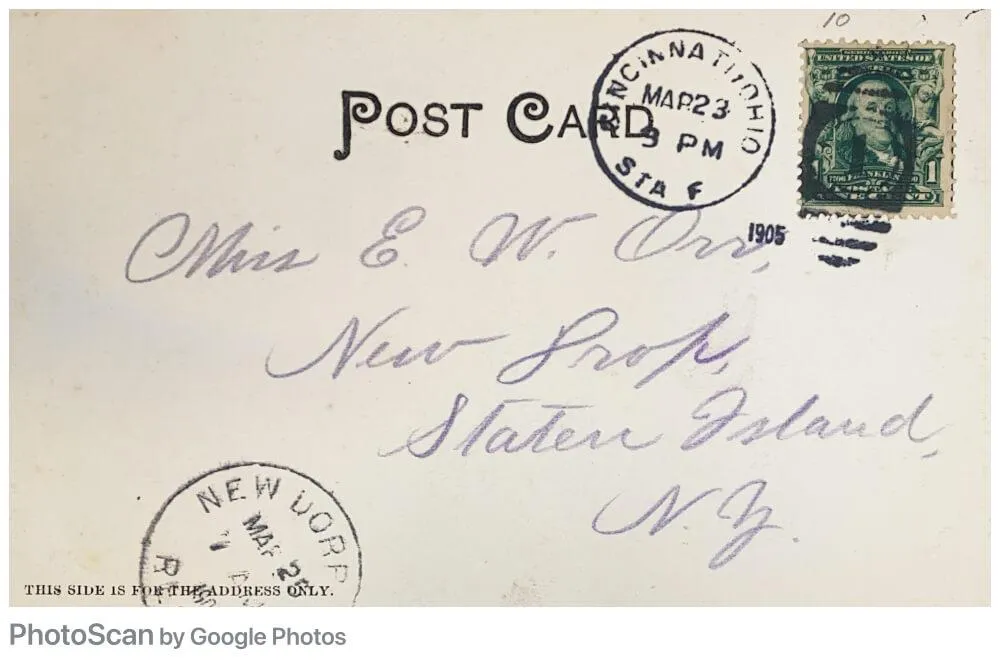 10
POST CARD
CINCINNATI, OHIO
MAR 23
9 PM
STA F
1905
SERIES 1902
UNITED STATES OF
AMERICA
1706 FRANKLIN 1790
1 1
Miss E. W. Orr,
New Drop,
Staten Island,
N.Y.
NEW DORP
MAR 25
THIS SIDE IS FOR THE ADDRESS ONLY.
PhotoScan by Google Photos